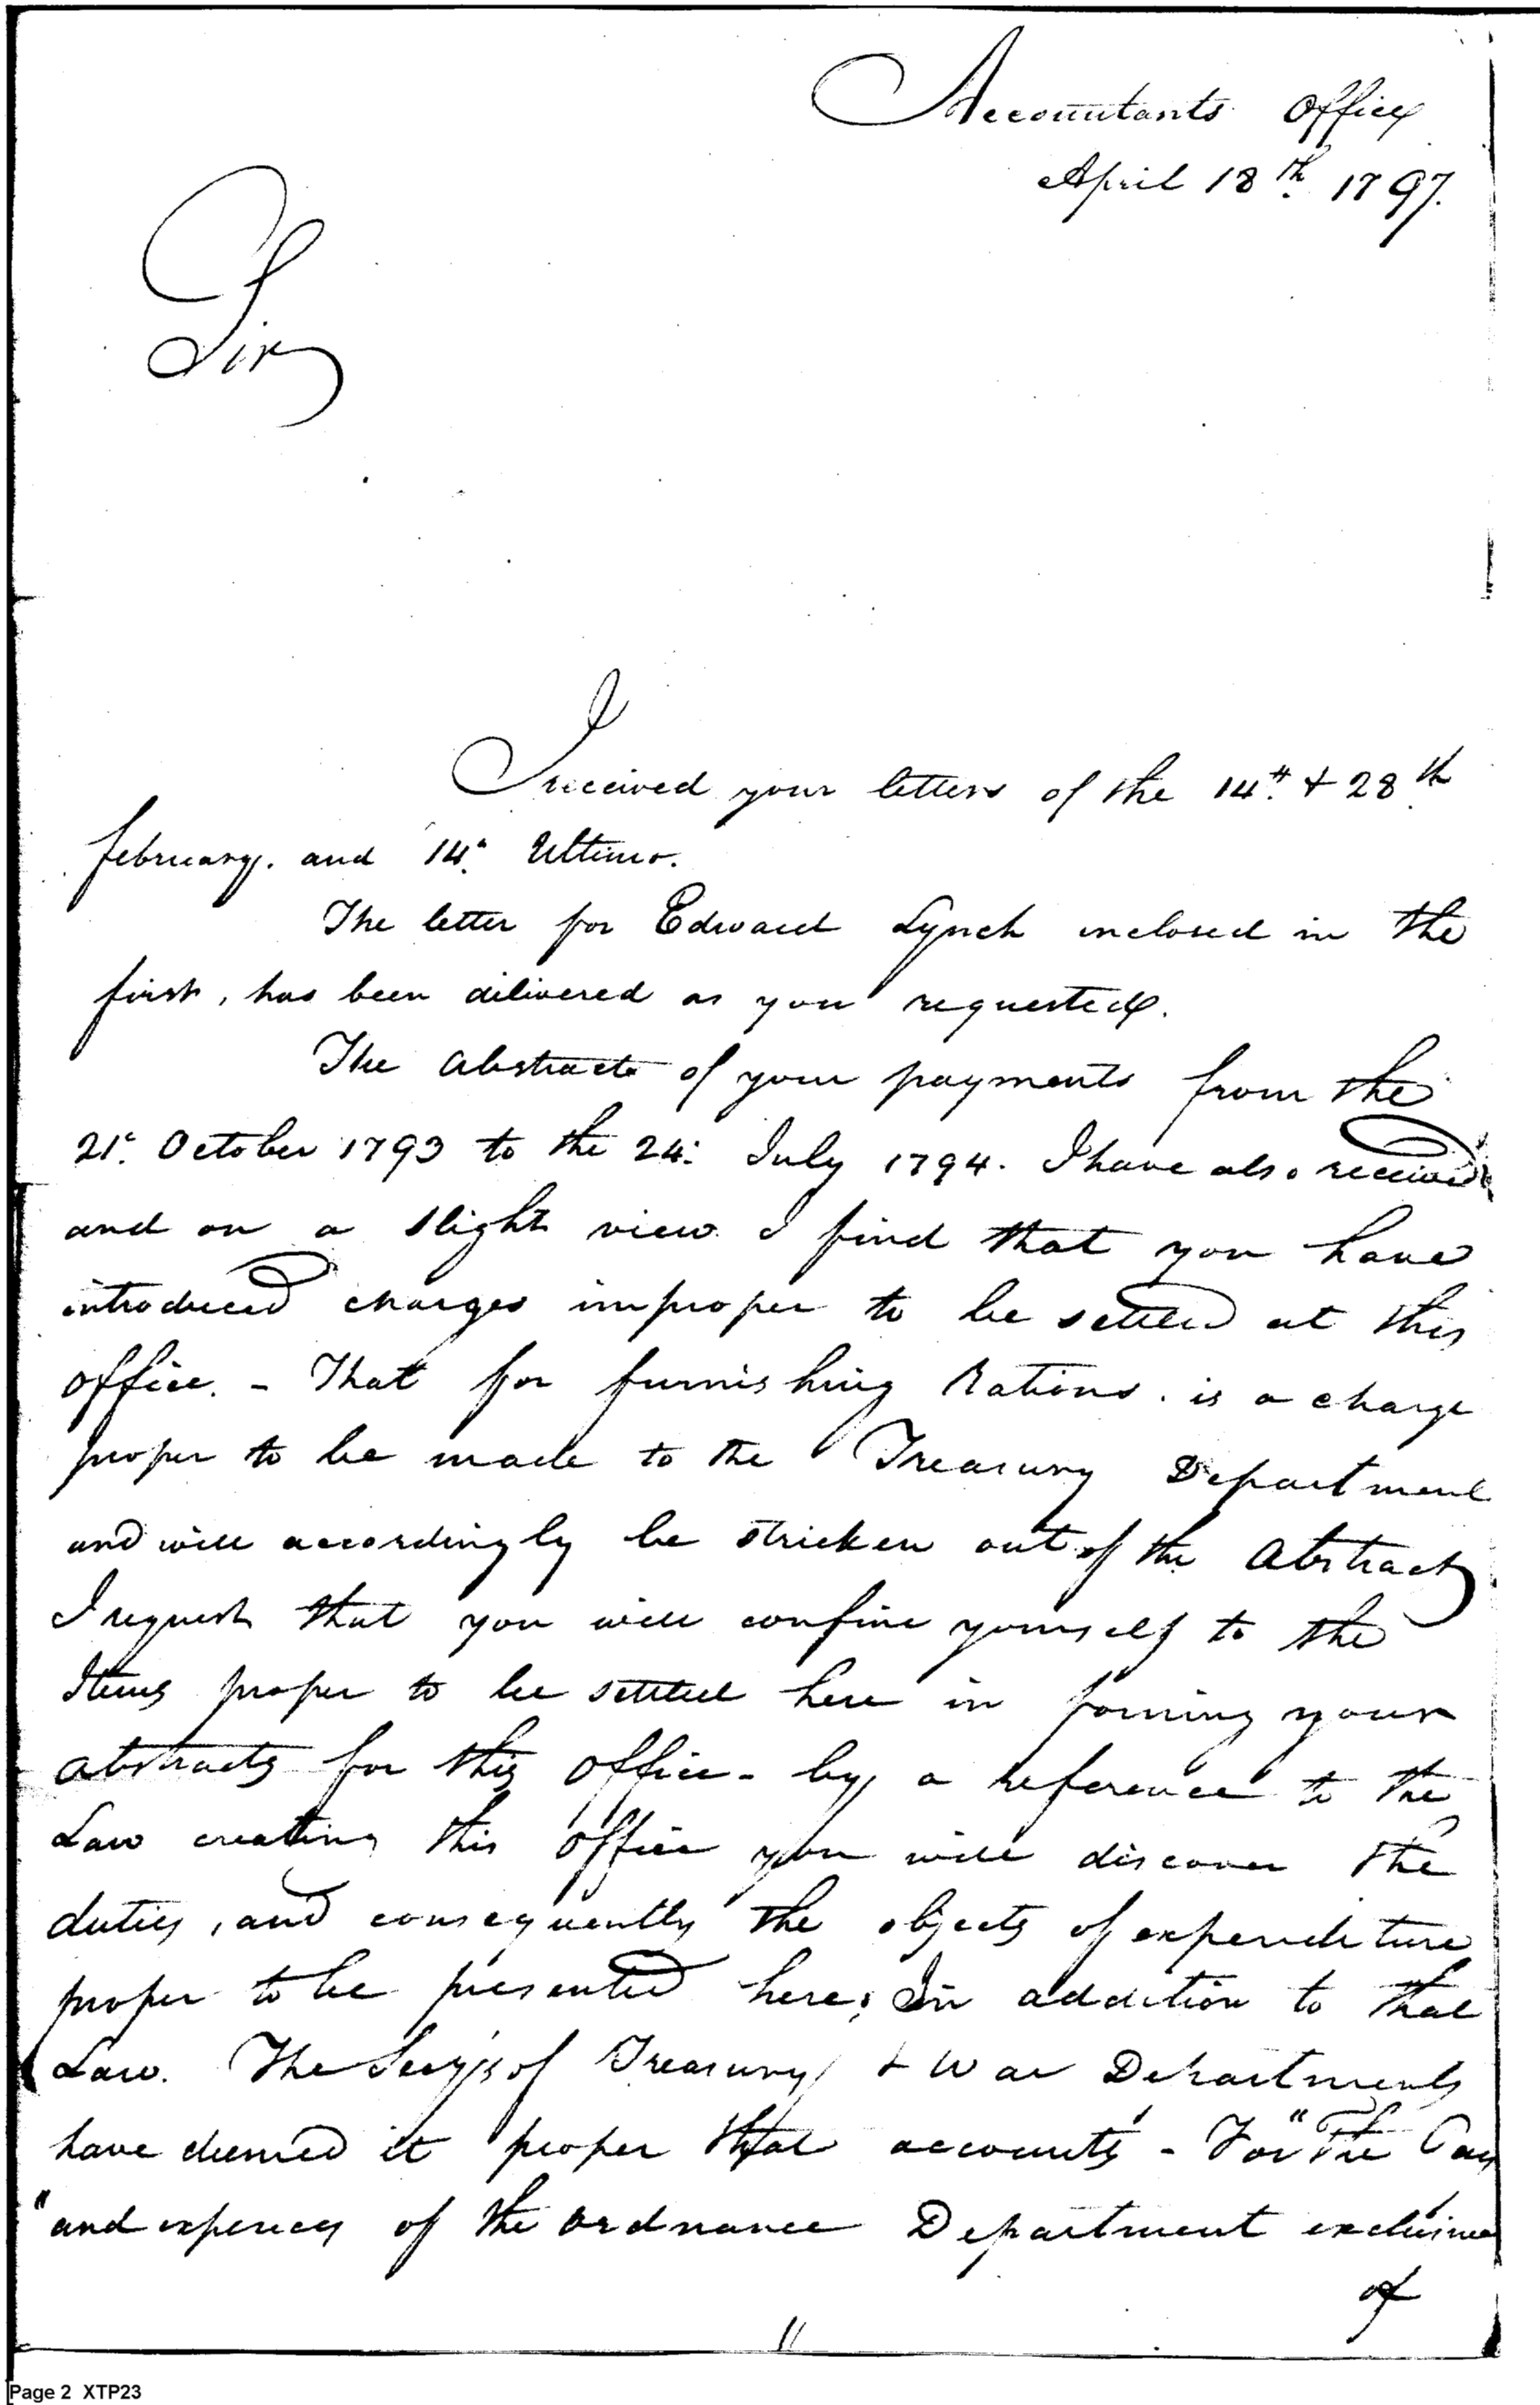 Accountants Office
April 18th 1797.
Sir
I received your letters of the 14th & 28th
february. and 14th Ultimo.
The letter for Edward Lynch inclosed in the
first, has been dilivered as you requested.
The Abstracts of your payments from the
21t October 1793 to the 24: July 1794. I have also received
and on a slight view I find that you have
introduced charges improper to be settled at this
office. - That for furnishing Rations is a charge
proper to be made to the Treasury Department
and will accordingly be stricken out of the Abstract
I request that you will confine yourself to the
Items proper to be settled here in forming your
Abstracts for this Office - by a reference to the
Law creating this Office you will discover the
duties, and consequently the objects of expenditure
proper to be presented here; In addition to that
Law. The Secy's of Treasury & War Departments
have deemed it proper that accounts - For "The Pay
"and expences of the Ordnance Department exclusive
of
Page 2 XTP23